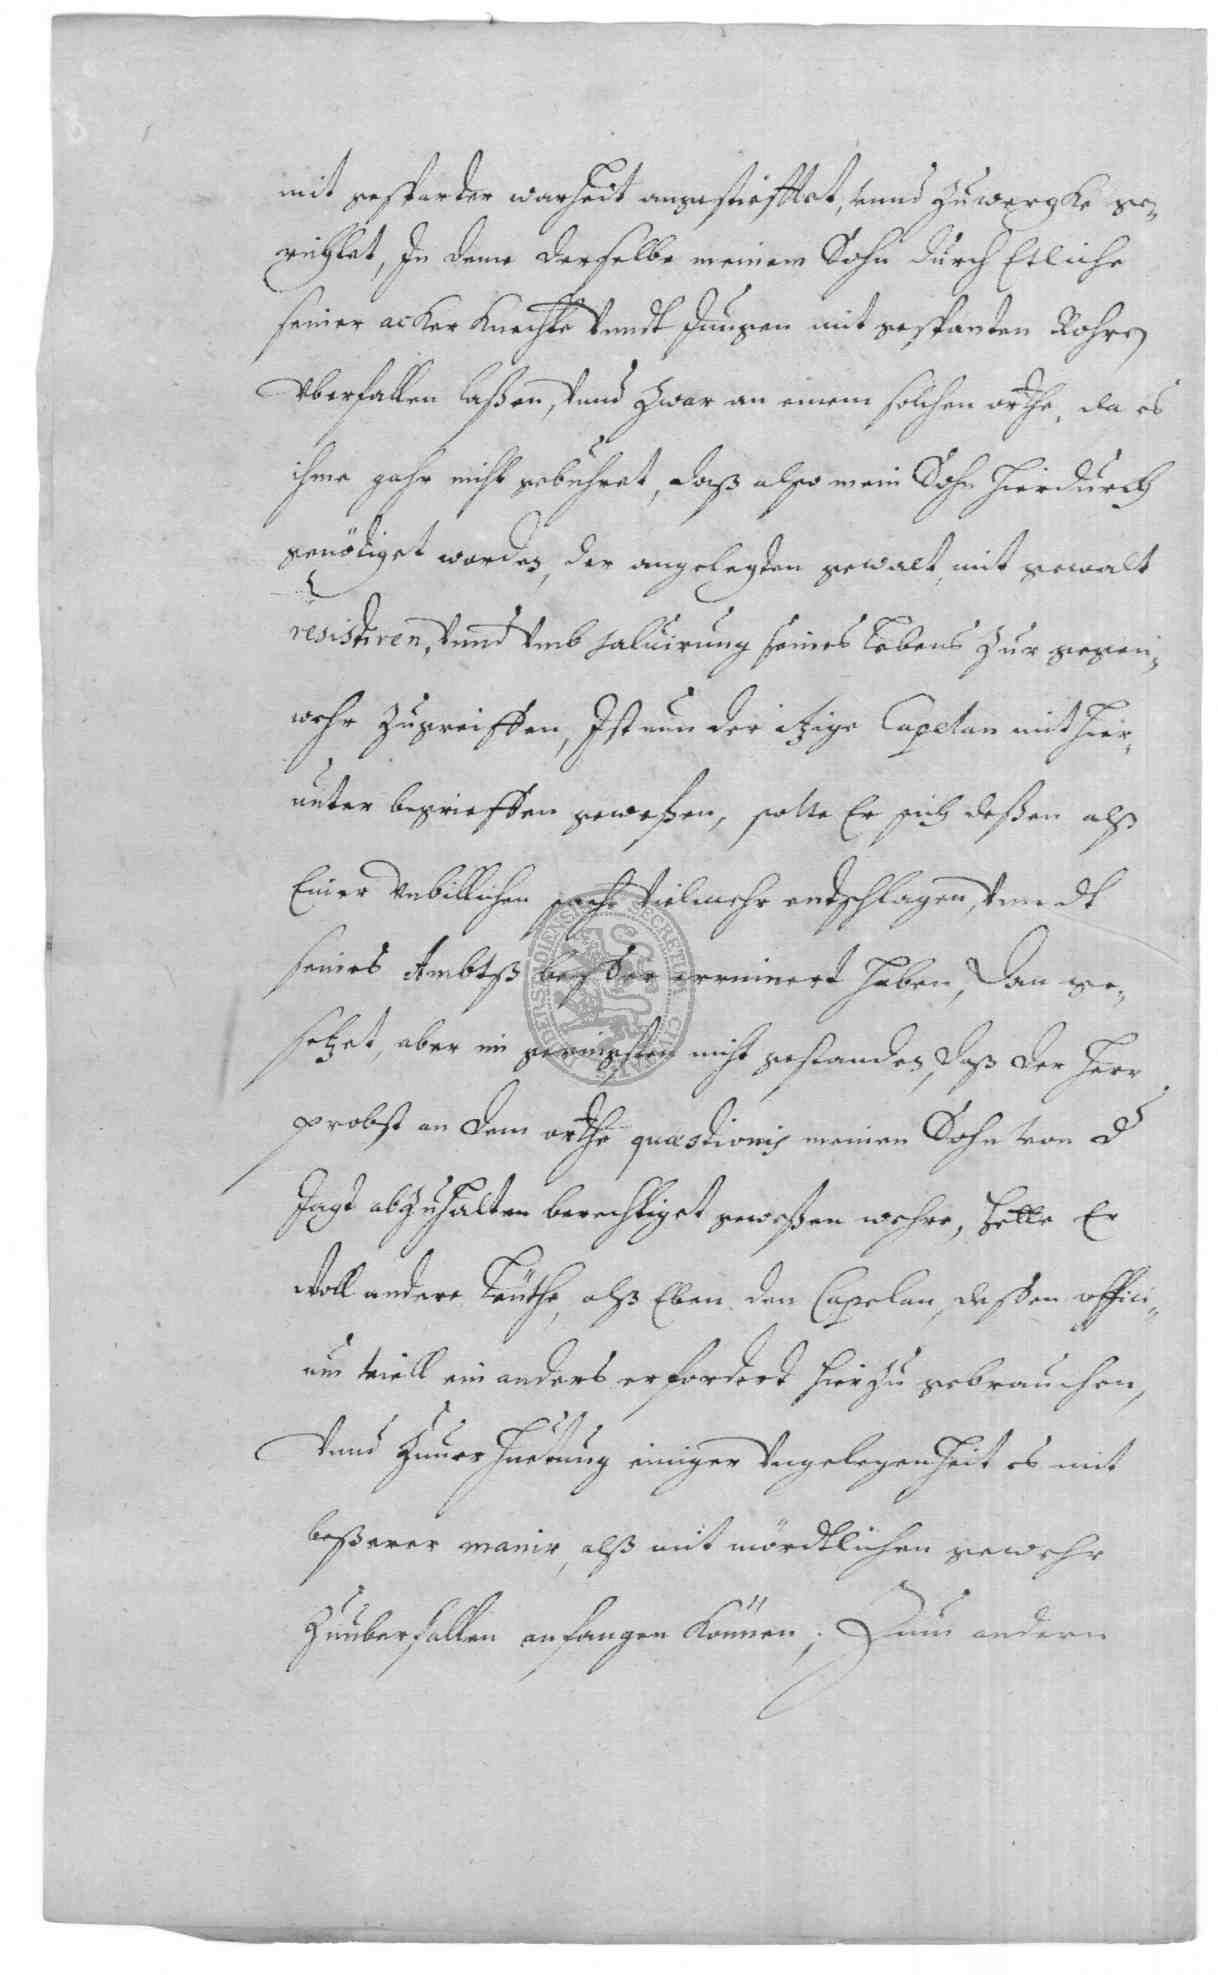 mit gesparter warheit angestiefftet, vnnd zuwergke ge-
richtet, In deme derselbe meinem Sohn durch Etliche
seiner acker Knechte vnndt Jungen mit gespanten Rohren
vberfallen laßen, vnnd zwar an einem solchen orthe, da es
ihme gahr nicht gebuhret, daß also mein Sohn hierdurch
genötiget worden, der angelegten gewalt, mit gewalt
resistiren, vnnd vmb salvirung seines Lebens zur gegen-
wehr zugreiffen, Ist nun der itzige Capelan mit hier-
unter begrieffen geweßen, solte Er sich deßen alß
Einer vnbillichen sache vielmehr entschlagen, vnndt
seines Ambtß beßer erinnert haben, Dan ge-
setzet, aber im geringsten nicht gestanden, daß der Herr
probst an dem orthe quæstionis meinen Sohn von d
Jagt abzuhalten berechtiget geweßen wehre, hette Er
woll andere Leuthe, alß Eben den Capelan, deßen offici-
um viell ein anders erfordert hierzu gebrauchen,
vnnd zuuerhuetung einiger vngelegenheit es mit
beßerer manir, alß mit mördtlichen gewehr
zuuberfallen anfangen können; Zum andern